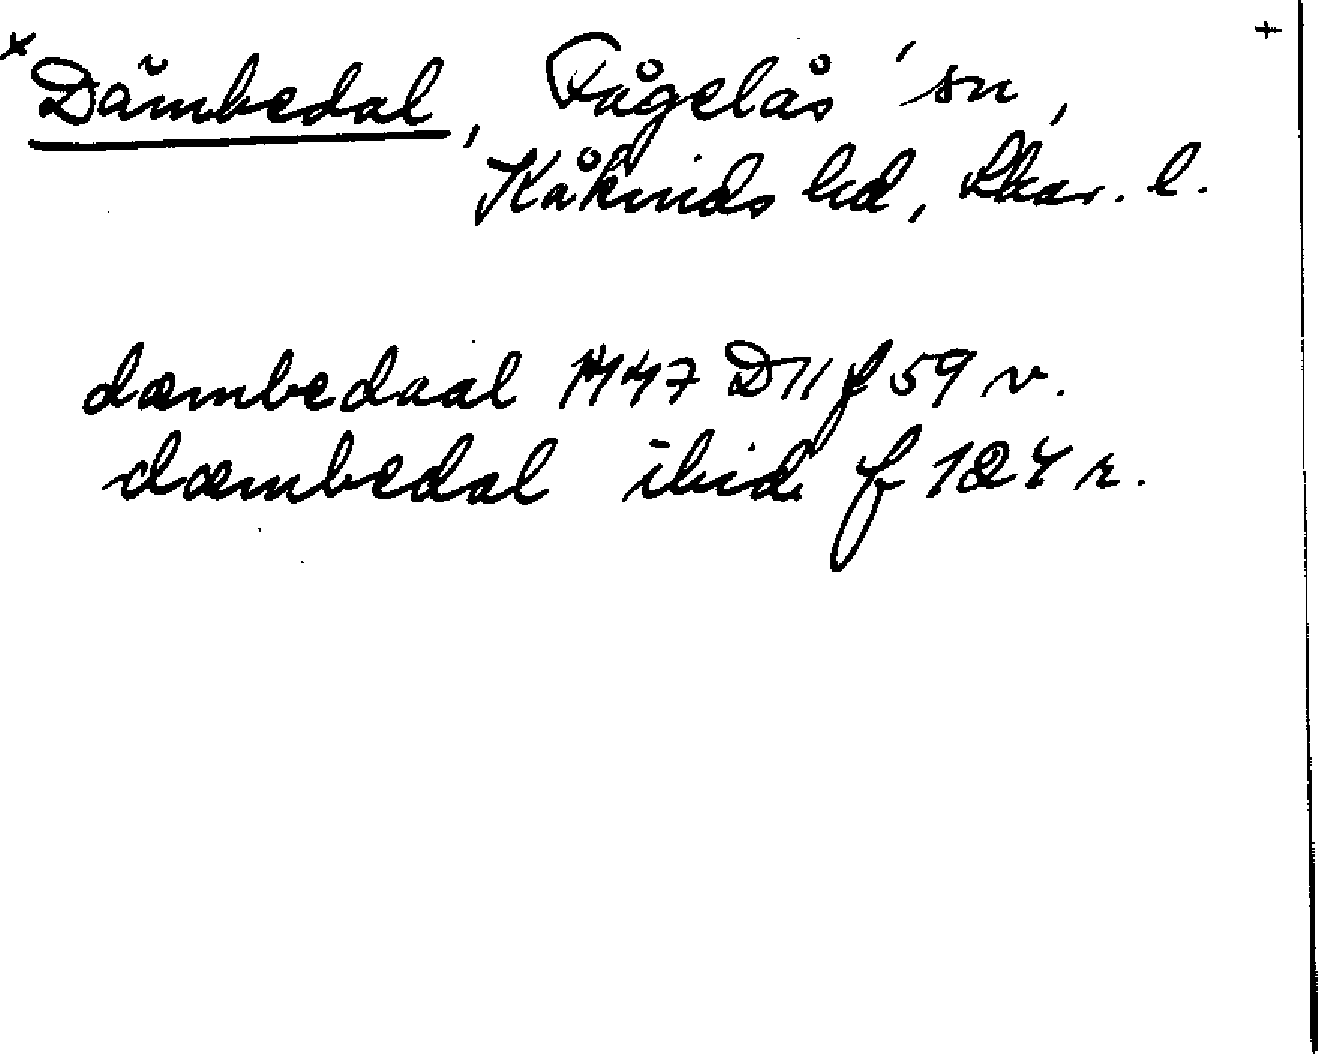 * Dämbedal, Fågelås sn, +
Kåkinds hd, Skar. l.
dæmbedaal 1447 D 11 f 59 v.
dæmbedal ibid f 124 r.